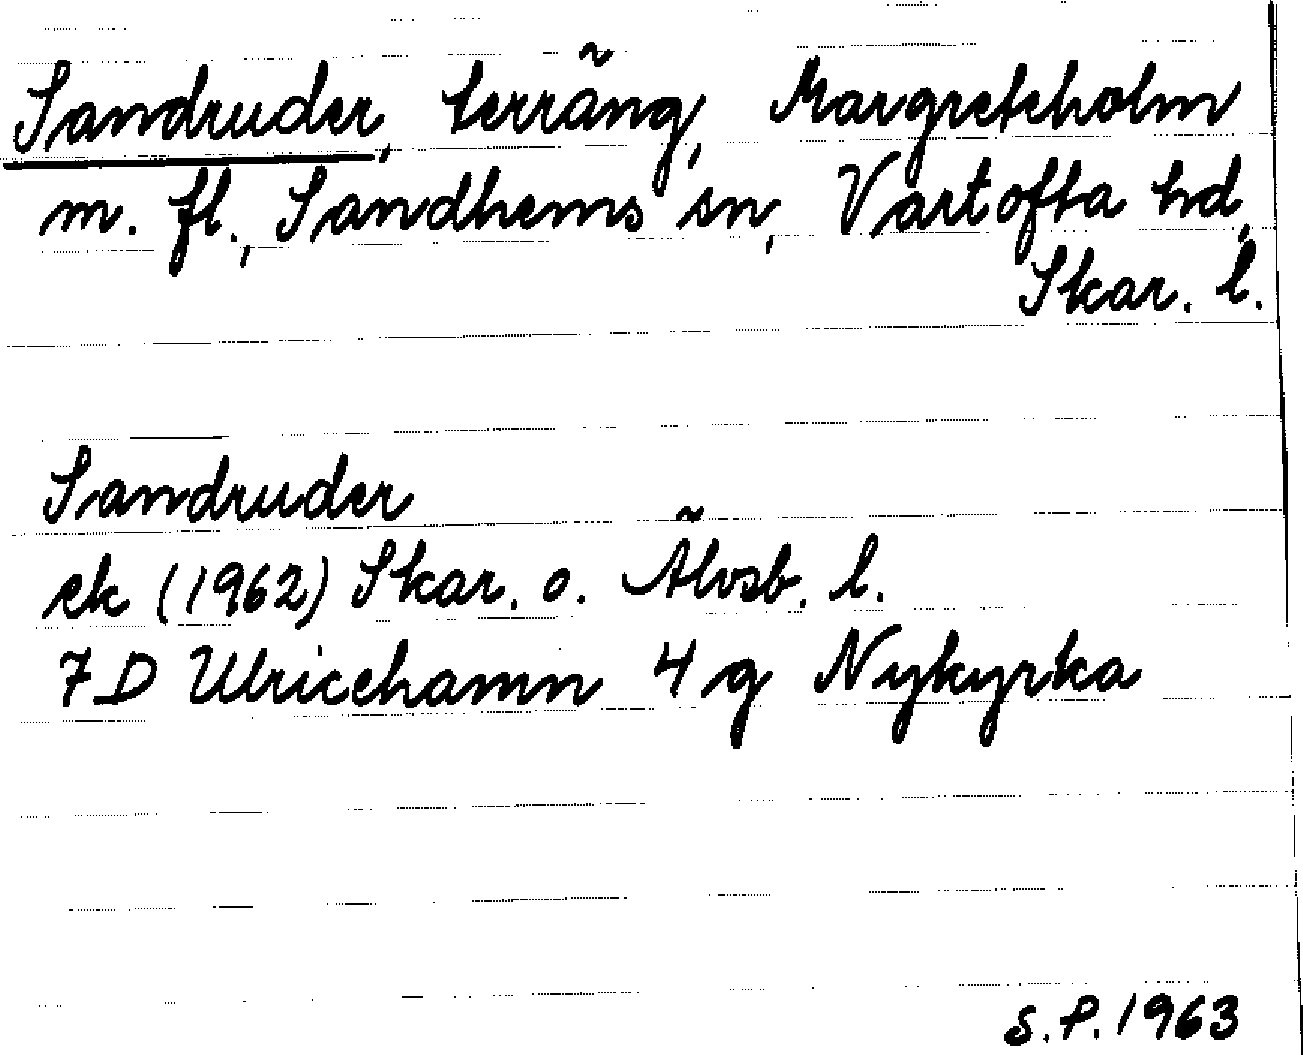 Sandruder, terräng, Margreteholm
m. fl., Sandhems sn, Vartofta hd,
Skar. l.
Sandruder
ek (1962) Skar. o. Älvsb. l.
7 D Ulricehamn 4 g Nykyrka
S. P. 1963